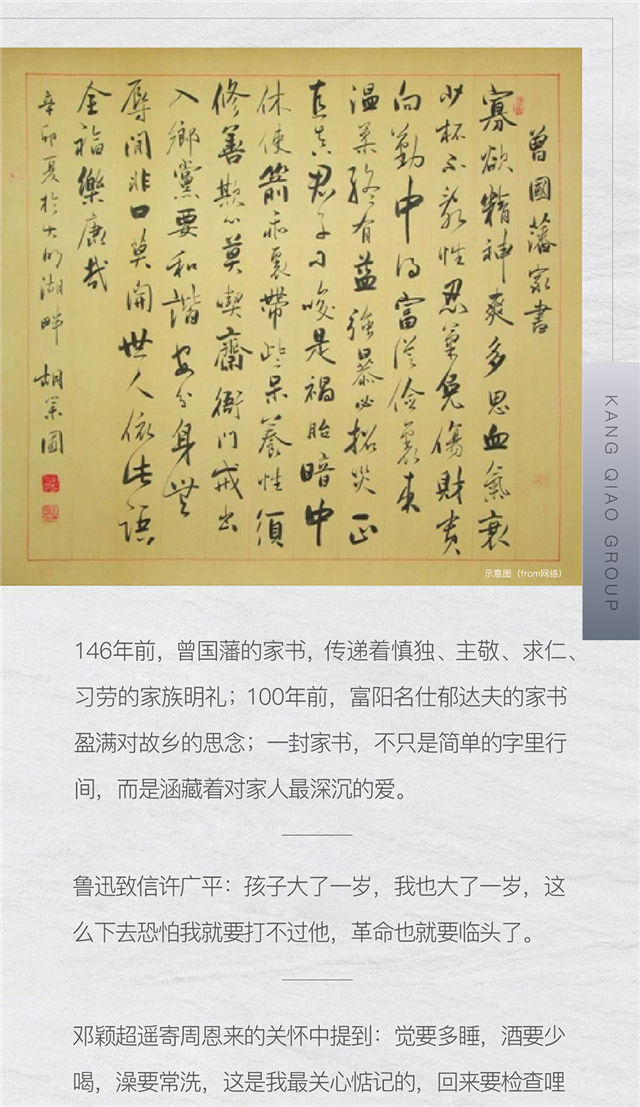 曾國藩家書
寡欲精神爽多思血氣衰
少杯不亂性忍氣免傷財貴
向勤中得富從儉裏來
温柔終有益強暴必招災正
直真君子刁唆是禍胎暗中
休使箭乖裏帶些呆養性須
修善欺心莫喫齋衙門戒出
入鄉黨要和諧安分身無
辱閒非口莫開世人依此語
全福樂康哉
辛卯夏於大明湖畔 胡
示意图（from网络）
KANG QIAO GROUP
146年前，曾国藩的家书，传递着慎独、主敬、求仁、
习劳的家族明礼；100年前，富阳名仕郁达夫的家书
盈满对故乡的思念；一封家书，不只是简单的字里行
间，而是涵藏着对家人最深沉的爱。
鲁迅致信许广平：孩子大了一岁，我也大了一岁，这
么下去恐怕我就要打不过他，革命也就要临头了。
邓颖超遥寄周恩来的关怀中提到：觉要多睡，酒要少
喝，澡要常洗，这是我最关心惦记的，回来要检查哩